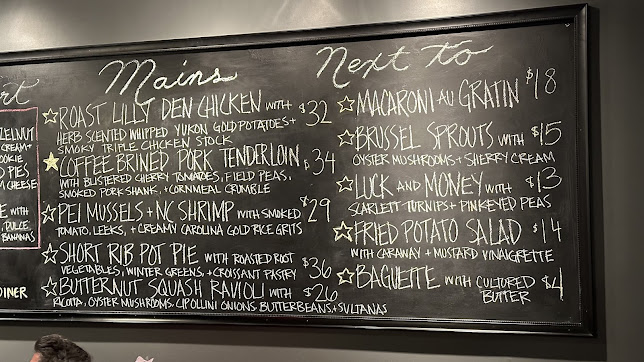 rt
ZELNUT
CREAM +
OOKIE
D PIES
M CHEESE
E WITH
, DULCE
BANANAS
DINER
Mains
ROAST LILLY DEN CHICKEN WITH $32
HERB SCENTED WHIPPED YUKON GOLD POTATOES +
SMOKY TRIPLE CHICKEN STOCK
COFFEE BRINED PORK TENDERLOIN $34
WITH BLISTERED CHERRY TOMATOES, FIELD PEAS,
SMOKED PORK SHANK, + CORNMEAL CRUMBLE
PEI MUSSELS + NC SHRIMP WITH SMOKED $29
TOMATO, LEEKS, + CREAMY CAROLINA GOLD RICE GRITS
SHORT RIB POT PIE WITH ROASTED ROOT $36
VEGETABLES, WINTER GREENS, + CROISSANT PASTRY
BUTTERNUT SQUASH RAVIOLI WITH $26
RICOTTA, OYSTER MUSHROOMS, CIPOLLINI ONIONS, BUTTERBEANS, + SULTANAS
Next to
MACARONI AU GRATIN $18
BRUSSEL SPROUTS WITH $15
OYSTER MUSHROOMS + SHERRY CREAM
LUCK AND MONEY WITH $13
SCARLETT TURNIPS + PINKEYED PEAS
FRIED POTATO SALAD $14
WITH CARAWAY + MUSTARD VINAIGRETTE
BAGUETTE WITH CULTURED $4
BUTTER